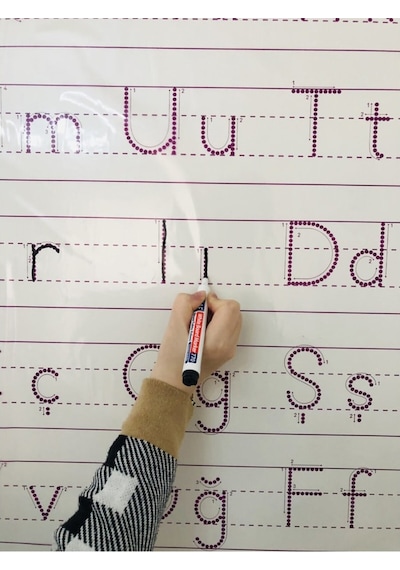 m U u T t
r I ı D d
ç G g Ş ş
v ğ F f